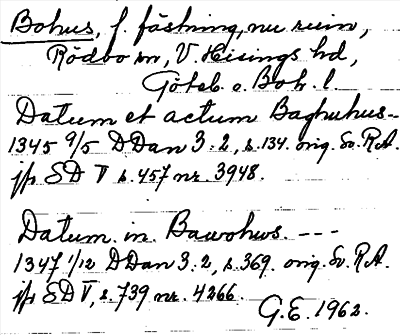 Bohus, f. fästning, nu ruin,
Rödbo sn, V. Hisings hd,
Göteb. o. Boh. l.
Datum et actum Baghuhus--
1345 9/5 DDan 3:2, s. 134. orig. Sv. R.A.
jfr SD V s. 457 nr. 3948.
Datum in Bawohws. ---
1347 1/12 DDan 3:2, s. 369. orig. Sv. R.A.
jfr SD V, s. 739 nr. 4266.
G.E. 1962.